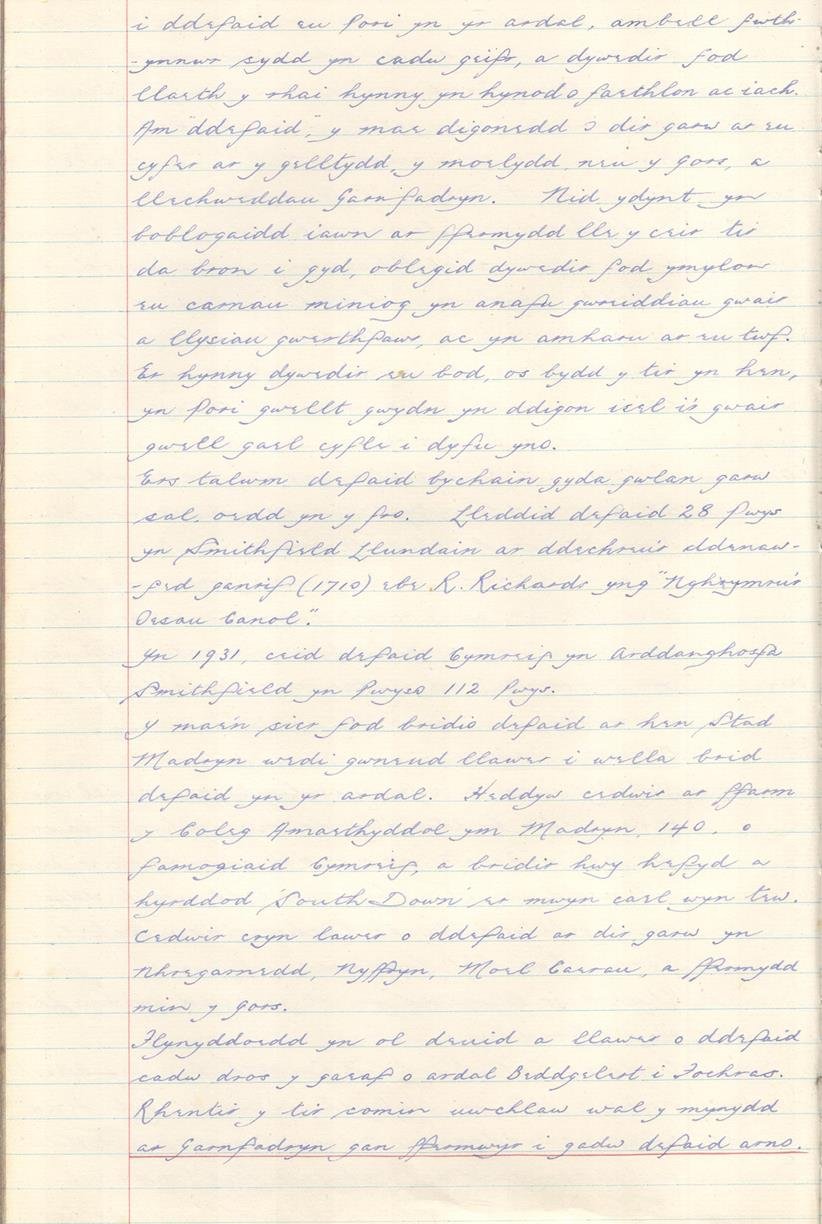 i ddefaid eu Pori yn yr ardal, ambell fwth-
-ynnwr sydd yn cadw geifr, a dywedir fod
llaeth y rhai hynny yn hynod o faethlon ac iach.
Am "ddefaid", y mae digonedd o dir garw ar eu
cyfer ar y gelltydd, y moelydd, neu y Gors, a
llechweddau Garnfadryn. Nid ydynt yn
boblogaidd iawn ar ffermydd lle y ceir tir
da bron i gyd, oblegid dywedir fod ymylon
eu carnau miniog yn anafu gwreiddiau gwair
a llysiau gwerthfawr, ac yn amharu ar eu twf.
Er hynny dywedir eu bod, os bydd y tir yn hen,
yn Pori gwellt gwydn yn ddigon isel i'r gwair
gwell gael cyfle i dyfu yno.
Ers talwm defaid bychain gyda gwlan garw
sal, oedd yn y fro. Lleddid defaid 28 Pwys
yn Smithfield Llundain ar ddechreu'r ddenaw-
-fed ganrif (1710) ebe R. Richards yng "Nghymru'r
Oesau Canol".
Yn 1931, ceid defaid Cymreig yn Arddanghosfa
Smithfield yn Pwyso 112 Pwys.
Y mae'n sicr fod bridio defaid ar hen Stad
Madryn wedi gwneud llawer i wella brid
defaid yn yr ardal. Heddyw cedwir ar ffarm
y Coleg Amaethyddol ym Madryn, 140. o
famogiaid Cymreig, a bridir hwy hefyd a
hyrddod 'South Down' er mwyn cael wyn tew.
Cedwir cryn lawer o ddefaid ar dir garw yn
Nhregarnedd, Nyffryn, Moel Caerau, a ffermydd
min y Gors.
Flynyddoedd yn ol deuid a llawer o ddefaid
cadw dros y gaeaf o ardal Beddgelert i Fochras.
Rhentir y tir comin uwchlaw wal y mynydd
ar Garnfadryn gan ffermwyr i gadw defaid arno.